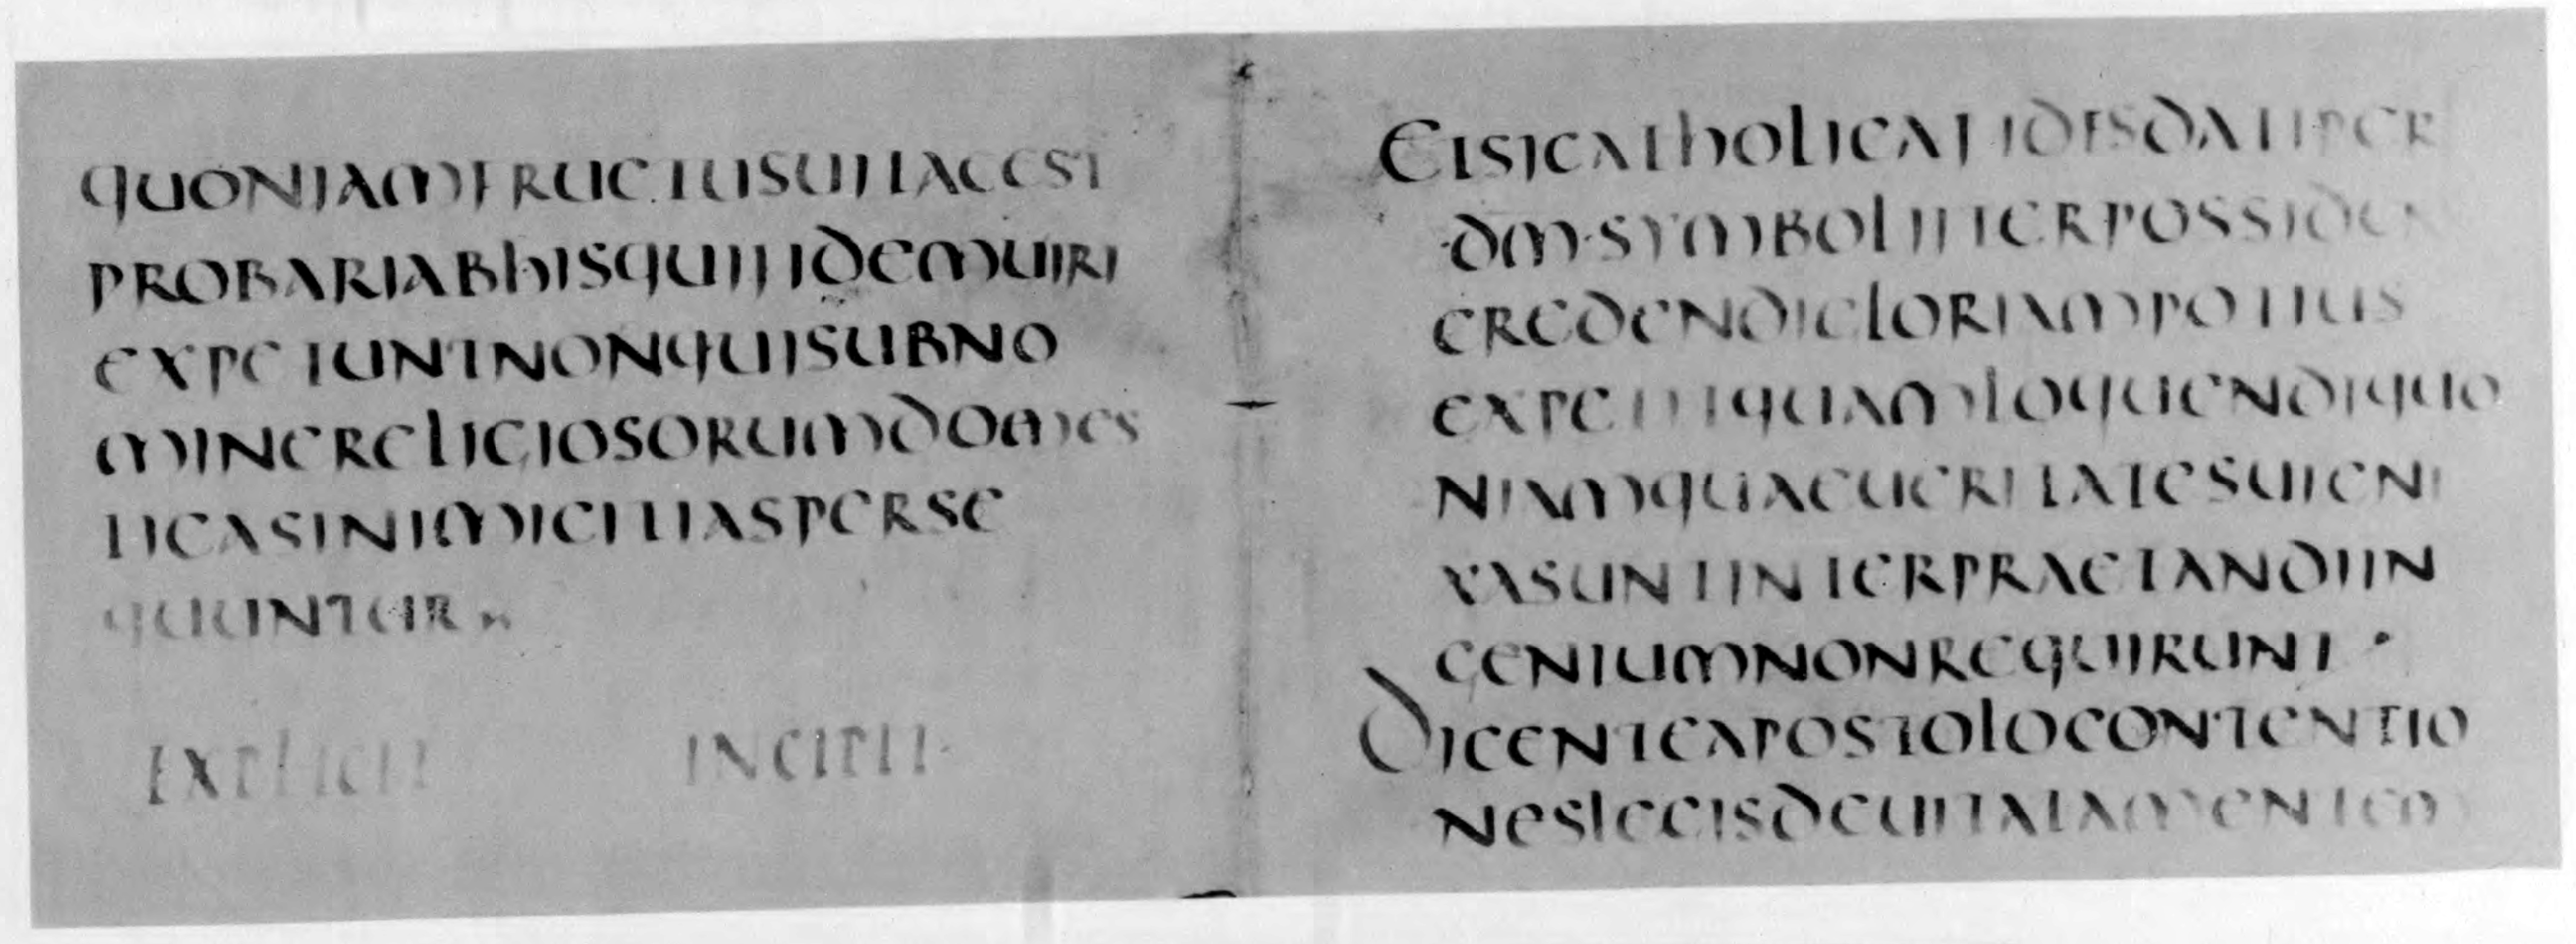 QUONIAMFRUCTUSUITAEEST
PROBARIABHISQUIFIDEMUIRI
EXPETUNTNONQUISUBNO
MINERELIGIOSORUMDOMES
TICASINIMICITIASPERSE
QUUNTUR
EXPLICIT INCIPIT·
ETSICATHOLICAFIDESDATIPER
·DM·SYMBOLIITERPOSSIDENS
CREDENDIGLORIAMPOTIUS
EXPETITQUAMLOQUENDIQUO
NIAMQUAEUERITATESUIENI
XASUNTINTERPRAETANDIIN
GENIUMNONREQUIRUNT·
DICENTEAPOSTOLOCONTENTIO
NESLEGISDEUITATAMENTEM